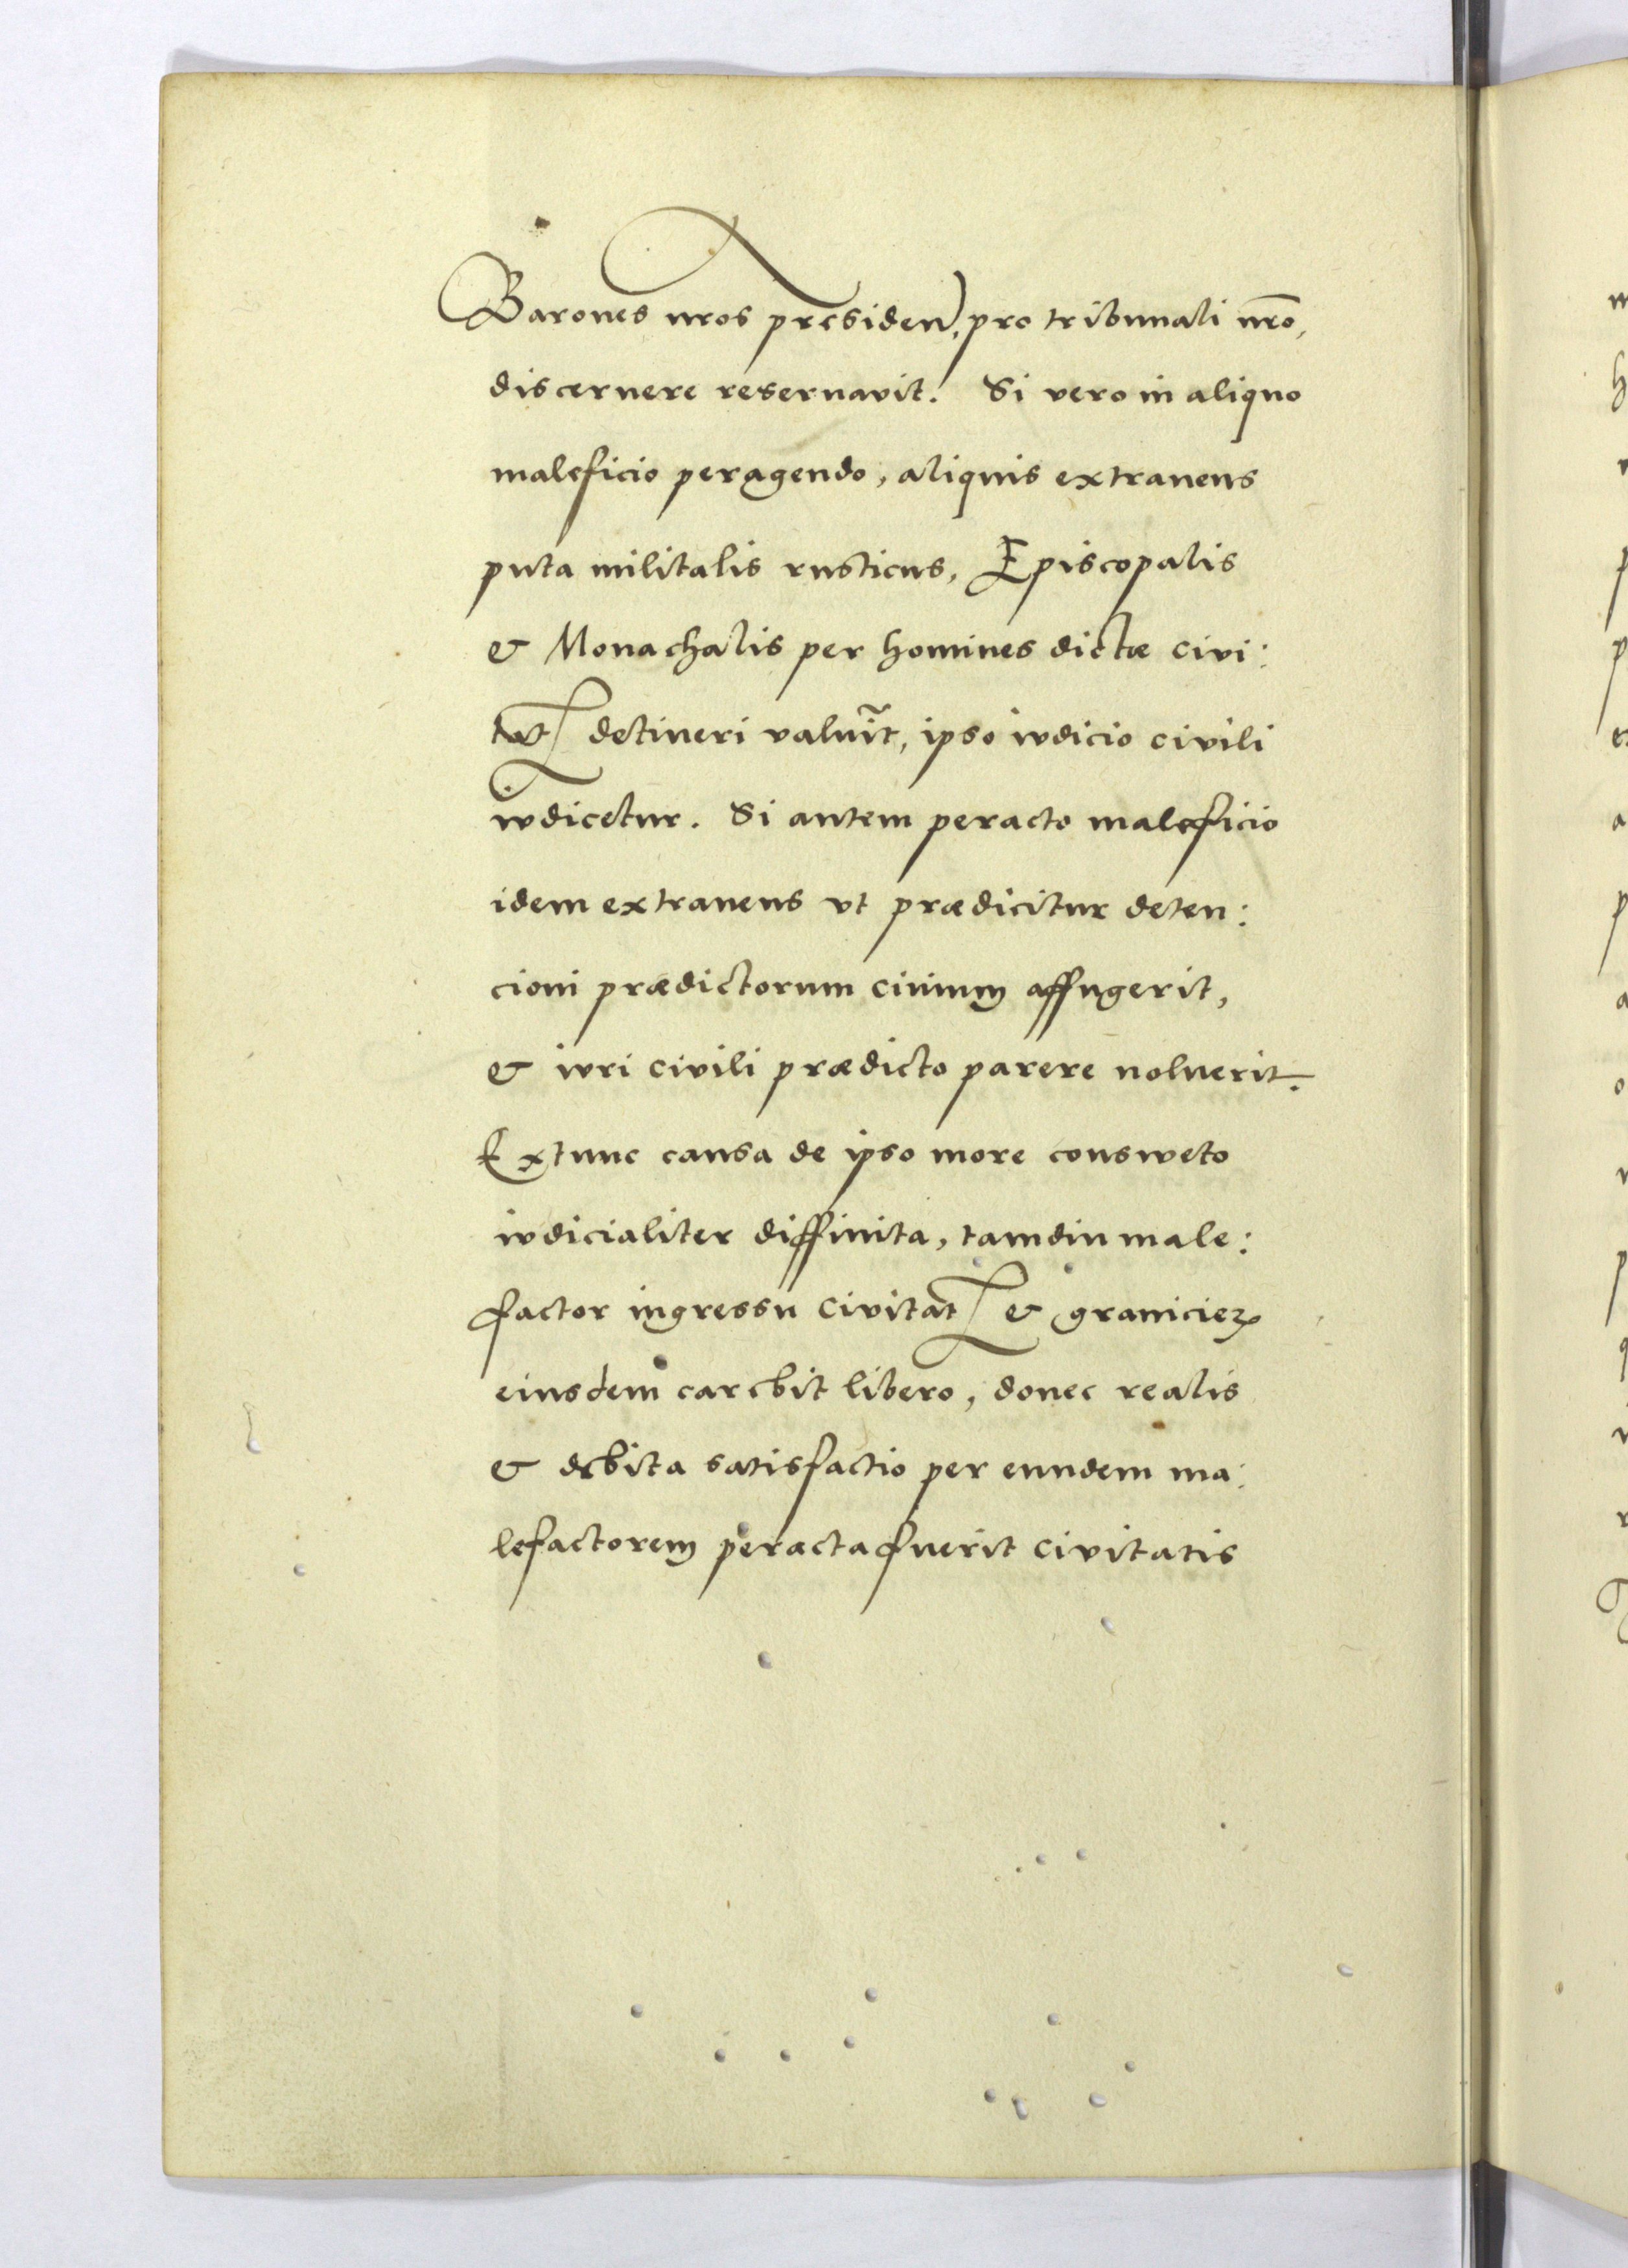 Barones nros presiden pro tribunali nro,
discernere reseruavit. Si vero in aliquo
maleficio peragendo, aliquis extraneus
puta militalis rusticus, Episcopalis
& Monachalis per homines dictæ civi:
detineri valuit, ipso iudicio civili
iudicetur. Si autem peracto maleficio
idem extraneus vt prædicitur deten:
cioni prædictorum ciuium affugerit,
& iuri civili prædicto parere noluerit.
Extunc causa de ipso more consweto
iudicialiter diffinita, tamdiu male:
factor ingressu civitat & granicieꝝ
eiusdem carebit libero, donec realis
& debita satisfactio per eundem ma:
lefactorem peracta fuerit civitatis